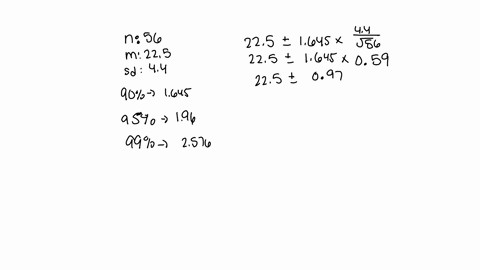 n: 56
m: 22.5
sd: 4.4
90% → 1.645
95% → 1.96
99% → 2.576
22.5 ± 1.645 × 4.4/√56
22.5 ± 1.645 × 0.59
22.5 ± 0.97